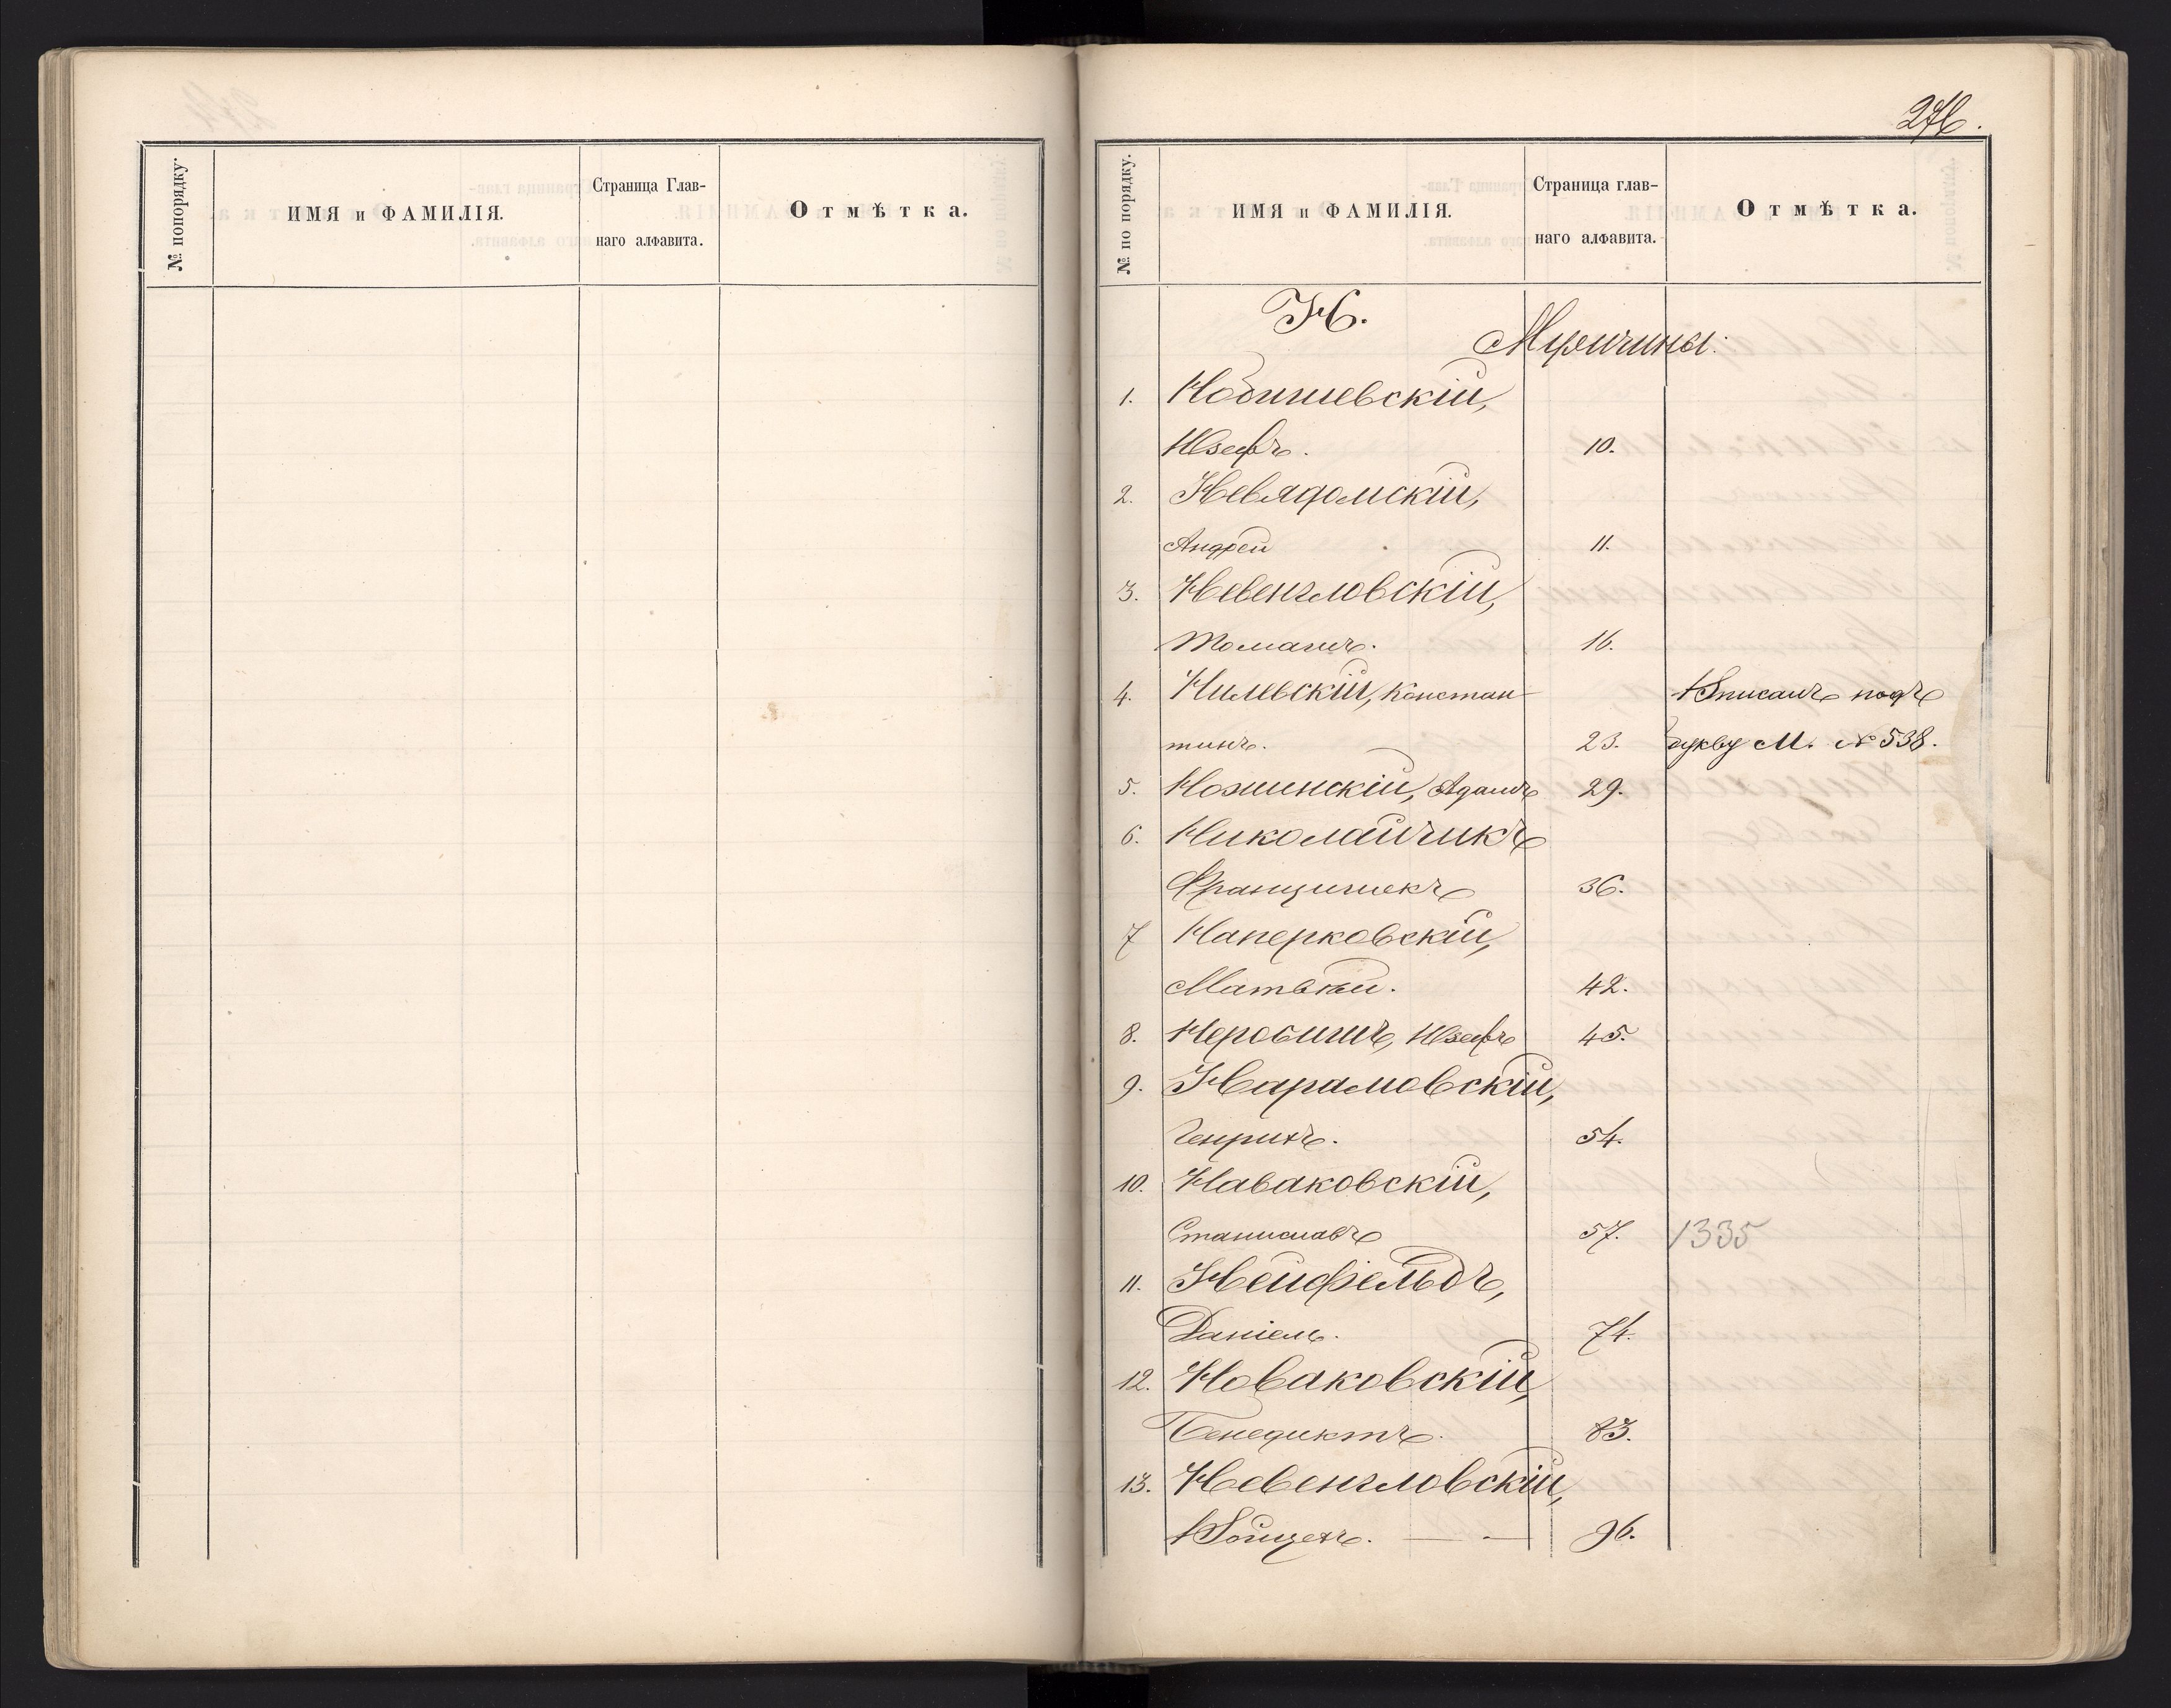 № попорядку.
ИМЯ и ФАМИЛІЯ.
Страница Глав-
наго алфавита.
Отмѣтка.
276.
№ по порядку.
ИМЯ и ФАМИЛІЯ.
Страница глав-
наго алфавита.
Отмѣтка.
Н.
Мужчины:
1. Нобишевскій,
Юзефъ. 10.
2. Невядомскій,
Андрей 11.
3. Невенгловскій,
Томашъ. 16.
4. Нилевскій, Констан Вписанъ подъ
тинъ. 23. букву М. № 538.
5. Ножинскій, Адамъ 29.
6. Николайчикъ
Францишекъ 36.
7 Наперковскій,
Матвѣй. 42.
8. Неробишъ, Юзефъ 45.
9. Нарамовскій,
Генрихъ. 54.
10. Наваковскій,
Станиславъ 57. 1335
11. Нейфельдъ,
Даніель. 74.
12. Новаковскій,
Бенедиктъ. 83.
13. Невенгловскій,
Войцехъ. — - — 96.